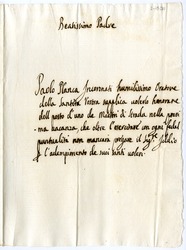 Beatissimo Padre
Paolo Planca Incoronati humilissimo Oratore
della Santità Vostra supplica volerlo honorare
dell posto d'uno de Mastri di strada nella prossi
ma vacanza, che oltre l'esercitare con ogni
puntualità non mancarà pregare il
l'adempimento de suoi santi voleri